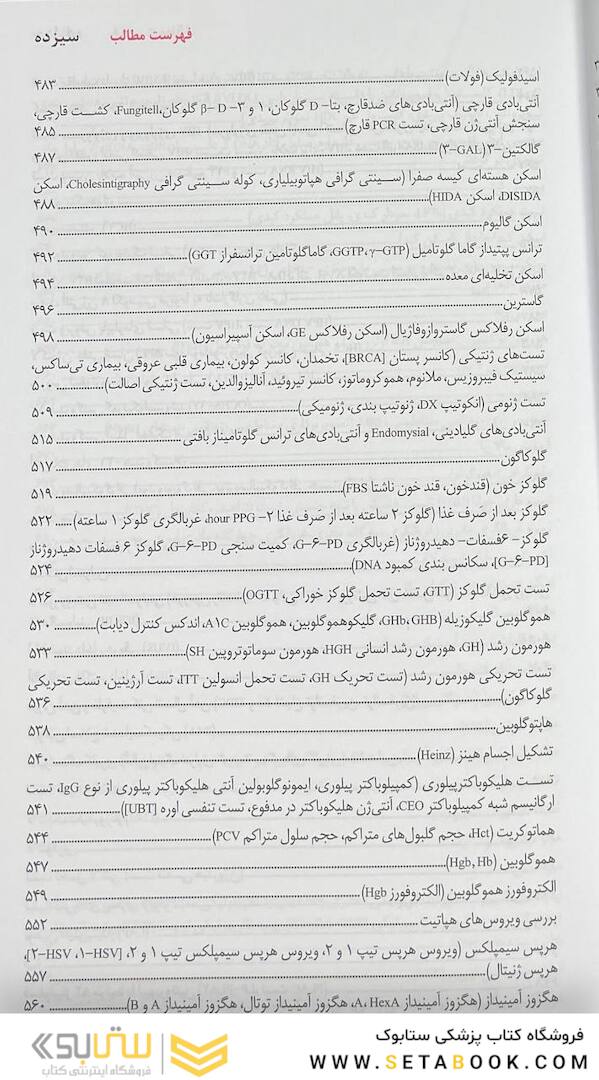 فهرست مطالب سیزده
اسیدفولیک (فولات) ۴۸۳
آنتی‌بادی قارچی (آنتی‌بادی‌های ضدقارچ، بتا- D گلوکان، ۱ و ۳- β- D گلوکان،Fungitell، کشت قارچی،
سنجش آنتی‌ژن قارچی، تست PCR قارچ) ۴۸۵
گالکتین-۳ (GAL-۳) ۴۸۷
اسکن هسته‌ای کیسه صفرا (سینتی گرافی هپاتوبیلیاری، کوله سینتی گرافی Cholesintigraphy، اسکن
DISIDA، اسکن HIDA) ۴۸۸
اسکن گالیوم ۴۹۰
ترانس پپتیداز گاما گلوتامیل (GGTP، γ-GTP، گاماگلوتامین ترانسفراز GGT) ۴۹۲
اسکن تخلیه‌ای معده ۴۹۴
گاسترین ۴۹۶
اسکن رفلاکس گاستروازوفاژیال (اسکن رفلاکس GE، اسکن آسپیراسیون) ۴۹۸
تست‌های ژنتیکی (کانسر پستان [BRCA]، تخمدان، کانسر کولون، بیماری قلبی عروقی، بیماری تی‌ساکس،
سیستیک فیبروزیس، ملانوم، هموکروماتوز، کانسر تیروئید، آنالیزوالدین، تست ژنتیکی اصالت) ۵۰۰
تست ژنومی (انکوتیپ DX، ژنوتیپ بندی، ژنومیکی) ۵۰۹
آنتی‌بادی‌های گلیادینی، Endomysial و آنتی‌بادی‌های ترانس گلوتامیناز بافتی ۵۱۵
گلوکاگون ۵۱۷
گلوکز خون (قندخون، قند خون ناشتا FBS) ۵۱۹
گلوکز بعد از صَرف غذا (گلوکز ۲ ساعته بعد از صَرف غذا ۲- hour PPG، غربالگری گلوکز ۱ ساعته) ۵۲۲
گلوکز- ۶فسفات- دهیدروژناز (غربالگری G-۶-PD، کمیت سنجی G-۶-PD، گلوکز ۶ فسفات دهیدروژناز
[G-۶-PD]، سکانس بندی کمبود DNA) ۵۲۴
تست تحمل گلوکز (GTT، تست تحمل گلوکز خوراکی، OGTT) ۵۲۶
هموگلوبین گلیکوزیله (GHb، GHB، گلیکوهموگلوبین، هموگلوبین A۱C، اندکس کنترل دیابت) ۵۳۰
هورمون رشد (GH، هورمون رشد انسانی HGH، هورمون سوماتوتروپین SH) ۵۳۳
تست تحریکی هورمون رشد (تست تحریک GH، تست تحمل انسولین ITT، تست آرژینین، تست تحریکی
گلوکاگون) ۵۳۶
هاپتوگلوبین ۵۳۸
تشکیل اجسام هینز (Heinz) ۵۴۰
تست هلیکوباکترپیلوری (کمپیلوباکتر پیلوری، ایمونوگلوبولین آنتی هلیکوباکتر پیلوری از نوع IgG، تست
ارگانیسم شبه کمپیلوباکتر CEO، آنتی‌ژن هلیکوباکتر در مدفوع، تست تنفسی اوره [UBT]) ۵۴۱
هماتوکریت (Hct، حجم گلبول‌های متراکم، حجم سلول متراکم PCV) ۵۴۴
هموگلوبین (Hgb, Hb) ۵۴۷
الکتروفورز هموگلوبین (الکتروفورز Hgb) ۵۴۹
بررسی ویروس‌های هپاتیت ۵۵۲
هرپس سیمپلکس (ویروس هرپس تیپ ۱ و ۲، ویروس هرپس سیمپلکس تیپ ۱ و ۲، [HSV-۱، HSV-۲]،
هرپس ژنیتال) ۵۵۷
هگزوز آمینیداز (هگزوز آمینیداز A، HexA، هگزوز آمینیداز توتال، هگزوز آمینیداز A و B) ۵۶۰
فروشگاه کتاب پزشکی ستابوک
WWW.SETABOOK.COM
ستابوک
فروشگاه اینترنتی کتاب